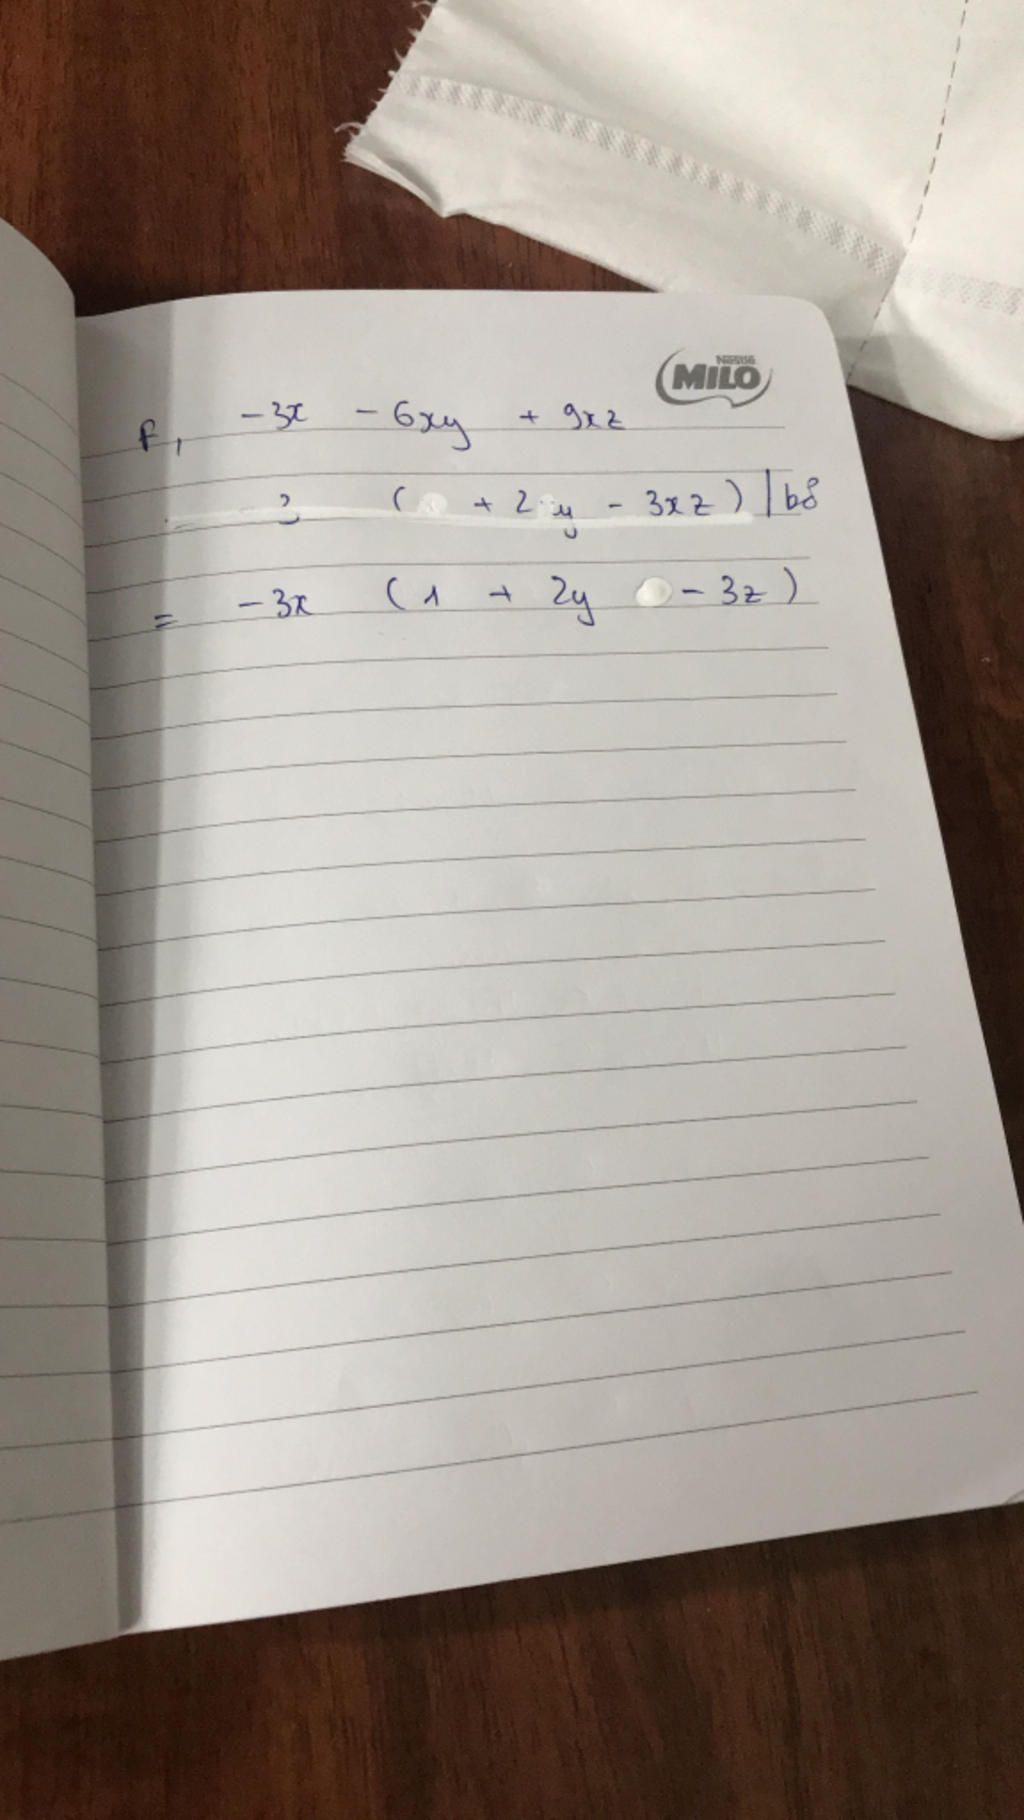 Nestlé
MILO
f, -3x - 6xy + 9xz
3 ( + 2 y - 3xz) | bỏ
= -3x (1 + 2y - 3z)